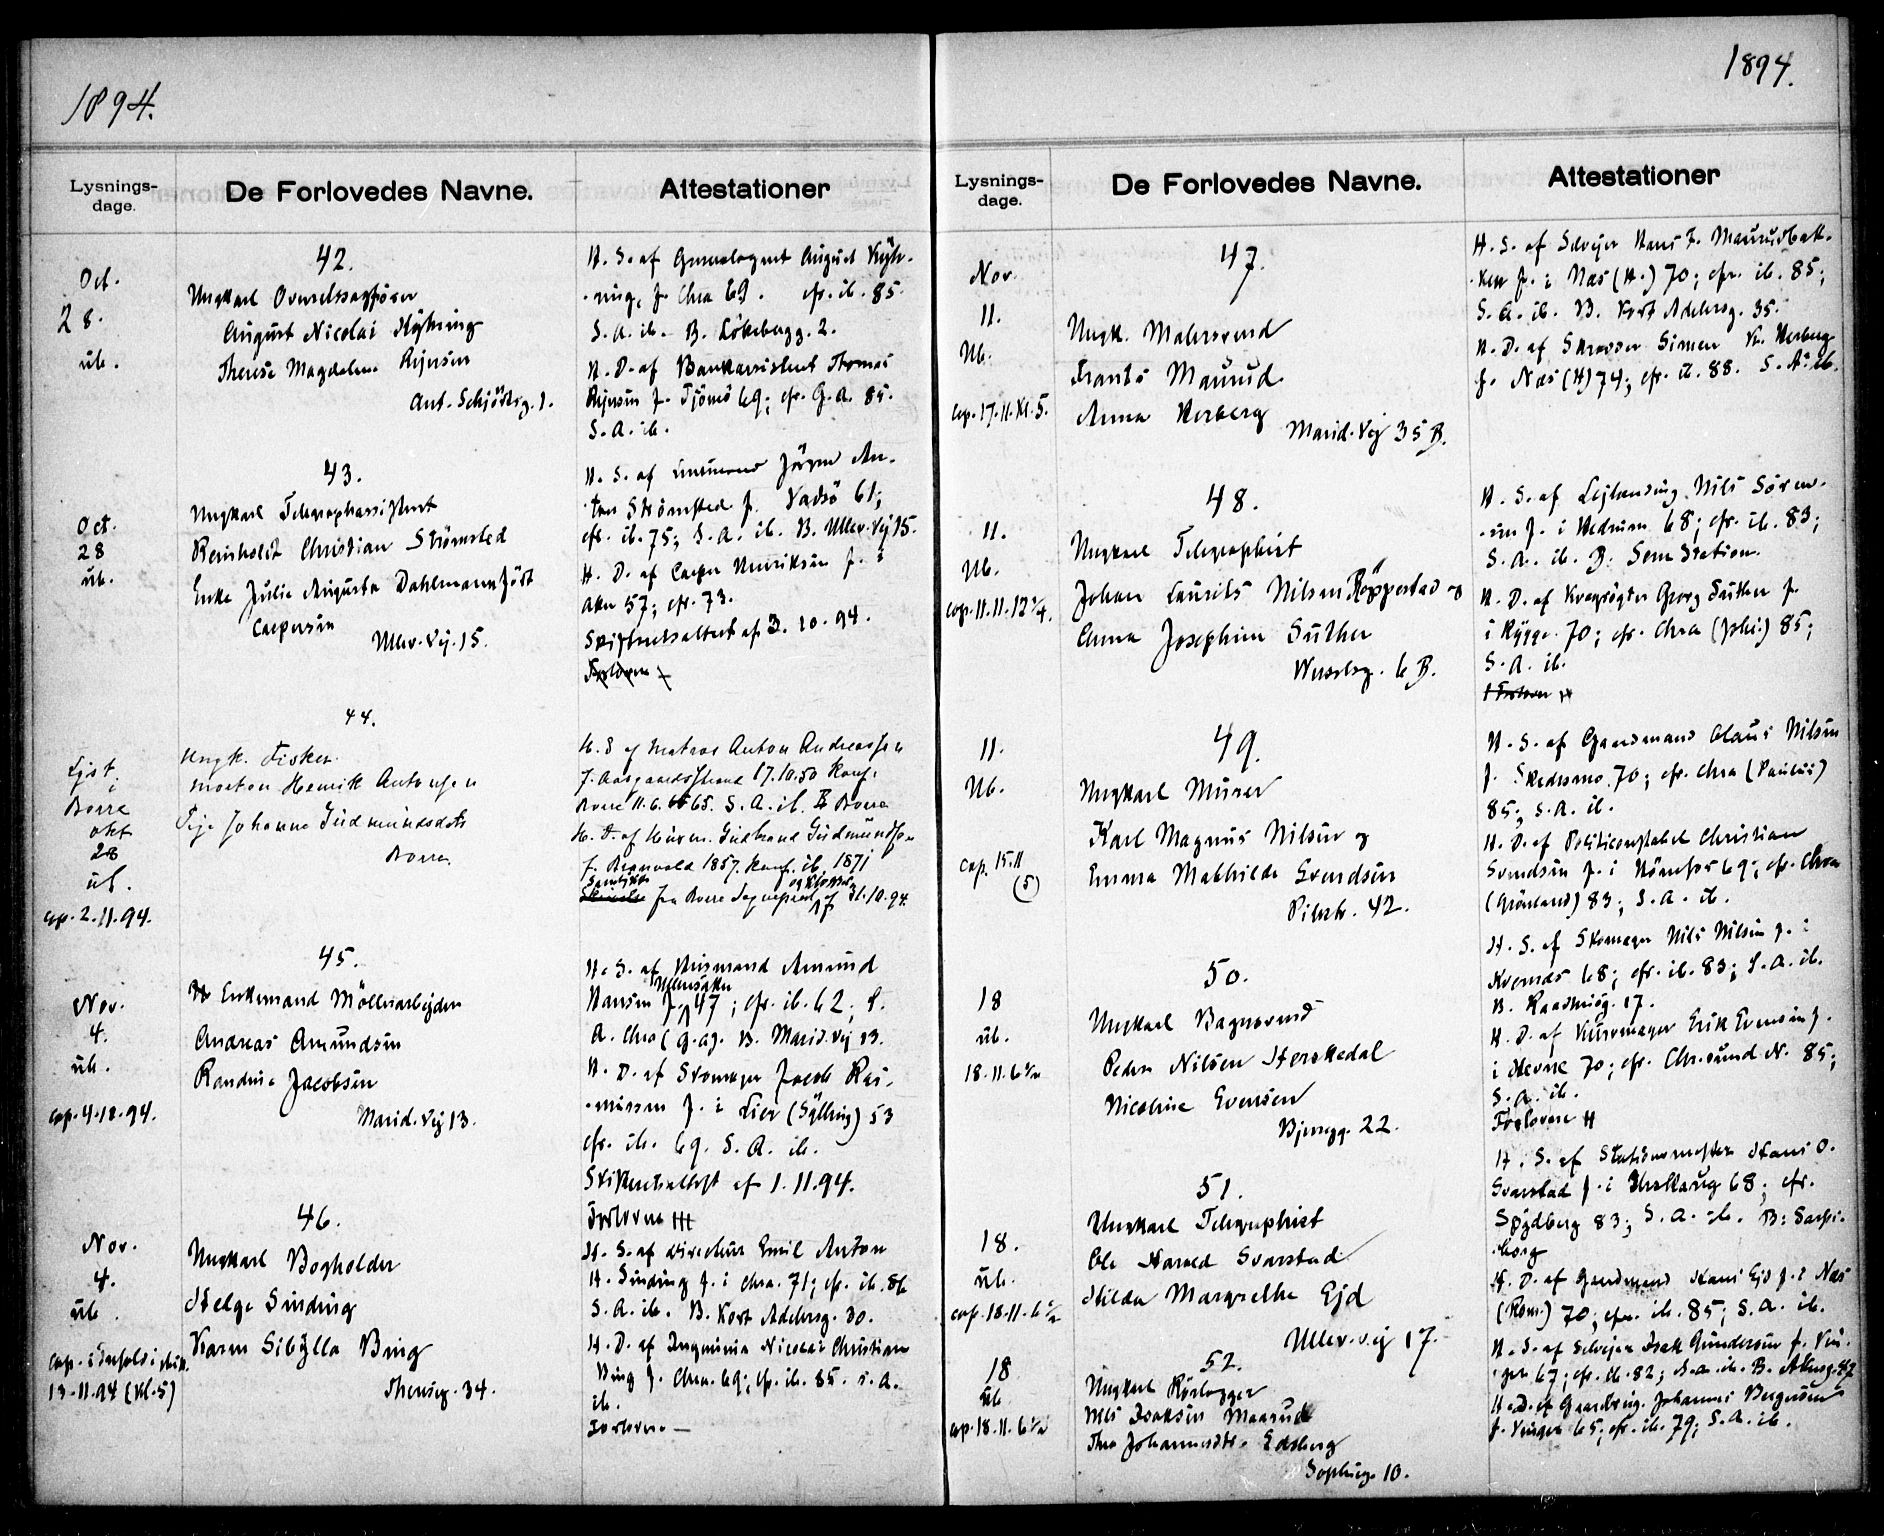 1894.
Lysnings-
dage.
De Forlovedes Navne.
Attestationer
42.
Oct.
28.
ub.
Ungkarl Overretssagfører
August Nicolai
Therese Magdalene
Ant. Schjøttsg. 1.
H. S. af August
f. Chra 69. cfr. ib. 85.
S. A. ib. B. Løkebergg. 2.
H. D. af Bankassistent Thomas
f. Tjømø 69; cfr. G. A. 85.
S. A. ib.
43.
Oct.
28
ub.
Ungkarl Telegraphassistent
Reinholdt Christian Strömsted
Enke Julie Augusta Dahlmann født
Caspersen
Ullev. Vej. 15.
H. S. af Jörgen An-
ton Strömsted f. Vadsö 61;
cfr. ib. 75; S. A. ib. B. Ullev. Vej 15.
H. D. af Casper Henriksen f. i
Aker 57; cfr. 73.
Skifteretsattest af 3. 10. 94.
Forlovere
44.
Lyst.
i
Borre
okt
28
ub.
cop. 2. 11. 94.
Ungk. Fisker
Morten Henrik Antonsen
Johanne Gudmundsdatr
Borre
H. S. af Matros Anton Andreassen
f. Aasgaardsstrand 17.10.50 Konf.
Borre 11. 6. 65. S. A. ib. B Borre
H. D. af Gudbrand Gudmundsen
f. 1857. Konf. ib. 1871
fra Borre Sogneprest af 31.10.94.
45.
Nov.
4.
ub.
cop. 4. 12. 94.
Enkemand Möllerarbejder
Andreas Amundsen
Randine Jacobsen
Marid. Vej 13.
H. S. af Husmand Amund
Ullensaker
Hansen f. 47; cfr. ib. 62; S.
A. Chra (G. A). B. Marid. Vej 13.
H. D. af Skomager Jacob Ras-
mussen f. i Lier (Sylling) 53
cfr. ib. 69. S. A. ib.
Skifteretsattest af 1. 11. 94.
Forlovere
46.
Nov.
4.
ub.
13. 11. 94 (Kl. 5)
Ungkarl Bogholder
Helge Sinding
Karen Sibylla Bing
Theresg. 34.
H. S. af Directeur Emil Anton
H. Sinding f. i Chra. 71; cfr. ib. 86
S. A. ib. B. Kort Adelersg. 30.
H. D. af Nicolai Christian
Bing f. Chra. 69; cfr. ib. 85. S. A.
ib.
Forlovere —
1894.
Lysnings-
dage.
De Forlovedes Navne.
Attestationer
47.
Nov.
11.
Ub.
cop. 17. 11. Kl. 5.
Ungk. Malersvend
Frants Maurud
Anna Herberg
Marid. Vej 35 B.
H. S. af Selvejer Hans J. Maurudbak-
ken f. i Næs (H.) 70; cfr. ib. 85;
S. A. ib. B. Kort Adelersg. 35.
H. D. af Skrædder Simen Herberg
f. Næs (H) 74; cfr. ib. 88. S. A. ib.
48.
11.
Ub.
cop. 11. 11.
Ungkarl Telegraphist
Johan Laurits Nilsen Röppestad og
Anna Josephine Suther
Wesselsg. 6 B.
H. S. af Nils Sören-
sen f. i Hedrum 68; cfr. ib. 83;
S. A. ib. B. Sem Station.
H. D. af Kvægrøgter Georg Suther f.
i Rygge 70; cfr. Chra (Johs.) 85;
S. A. ib.
49.
11.
Ub.
cop. 15. 11
(5)
Ungkarl Murer
Karl Magnus Nilsen og
Emma Mathilde Svendsen
Pilestr. 42.
H. S. af Gaardmand Olaus Nilsen
f. Skedsmo 70; cfr. Chra (Paulus)
85; S. A. ib.
H. D. af Politiconstabel Christian
Svendsen f. i 69; cfr. Chra
(Grönland) 83; S. A. ib.
50.
18
ub.
18. 11. 6½
Ungkarl Bagersvend
Peder Nilsen Herskedal
Nicoline Evensen
Bjerregg. 22.
H. S. af Skomager Nils Nilsen f. i
Kvernæs 68; cfr. ib. 83; S. A. ib.
B. Raadhusg. 17.
H. D. af Kurvmager Erik Evensen f.
i Hevne 70; cfr. Chr.sund N. 85;
S. A. ib.
Forlovere
51.
18.
ub.
cop. 18. 11. 6½
Ungkarl Telegraphist
Ole Harald Svarstad
Hilda Margrethe Ejd
Ullev. vej 17.
H. S. af Stationsmester Hans O.
Svarstad f. i Urskaug 68; cfr.
Spydberg 83; S. A. ib. B: Sarps-
borg
H. D. af Gaardmand Hans Ejd f. i Næs
(Rom.) 70; cfr. ib. 85; S. A. ib.
52.
18
ub.
cop. 18. 11. 6½
Ungkarl Rörlægger
Nils Isaksen Maarud
Thea Johannesdtr. Edsberg
Sophiesg. 10.
H. S. af Selvejer Isak Gundersen f. Vin-
ger 67; cfr. ib. 82; S. A. ib. B. Akersg. 47
H. D. af Gaardbrug. Johannes Bergersen
f. Vinger 65; cfr. ib. 79; S. A. ib.